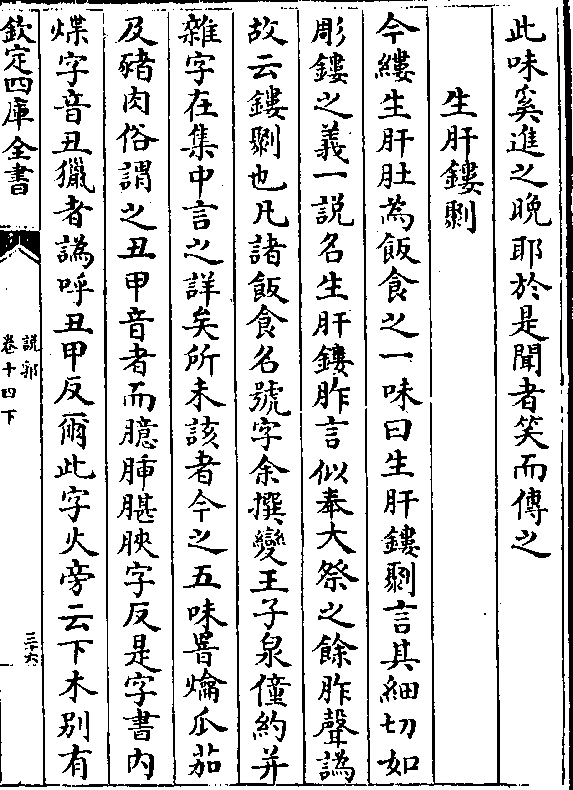 此味奚進之晩耶於是聞者笑而傳之
生肝鏤剶
今縷生肝肚為飯食之一味曰生肝鏤剶言其細切如
彫鏤之義一説名生肝鏤胙言似奉大祭之餘胙聲譌
故云鏤剶也凡諸飯食名號字余撰變王子泉僮約并
雜字在集中言之詳矣所未該者今之五味煑爚瓜茄
及豬肉俗謂之丑甲音者而臆腫腜腴字反是字書内
煠字音丑獵者譌呼丑甲反爾此字火旁云下木别有
欽定四庫全書
説郛
卷十四下
三十六